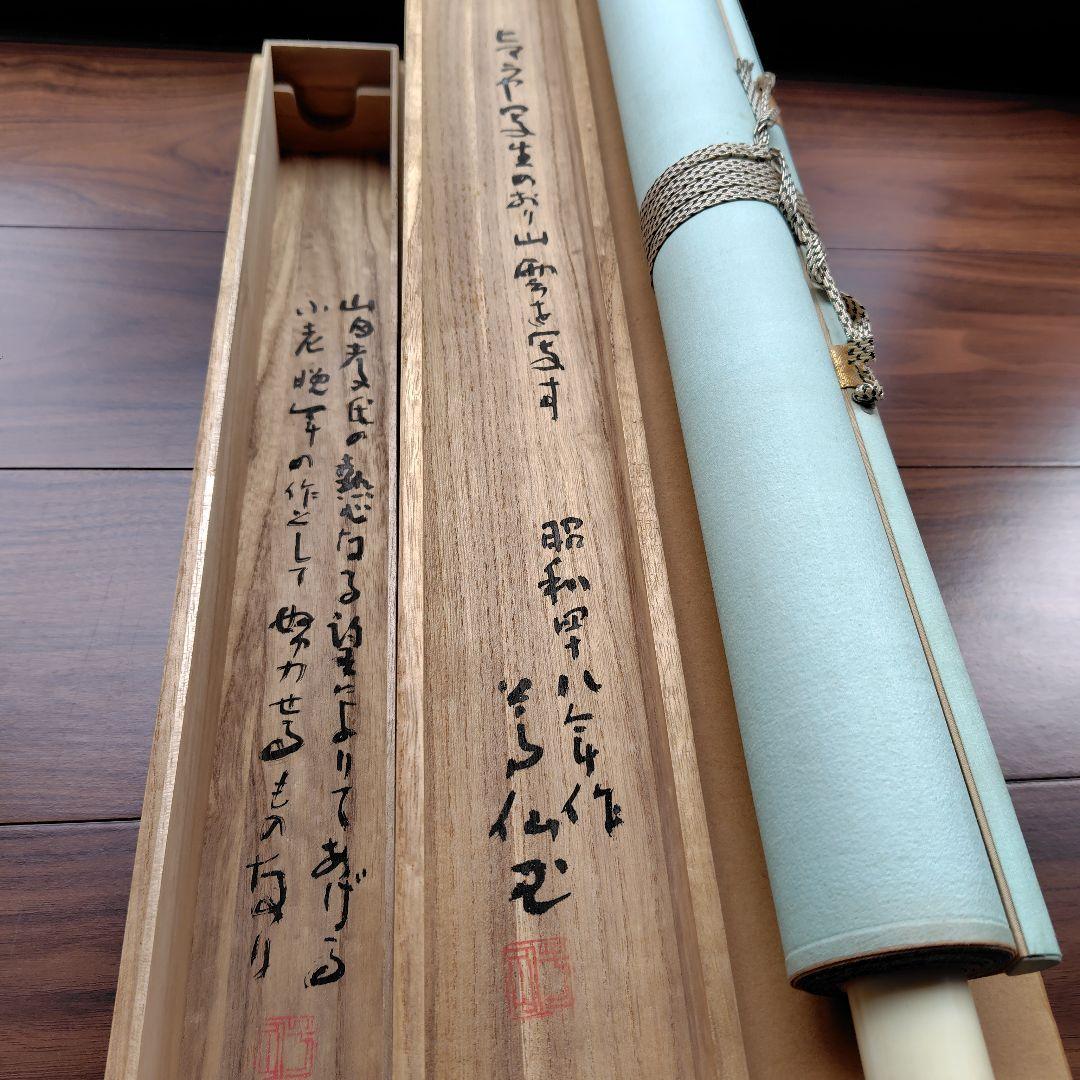 ヒマラヤー写生のおり山雲を写す
昭和四十八年作
氏の熱心なる望によりてあげる
小老晩年の作として努力せるものなり